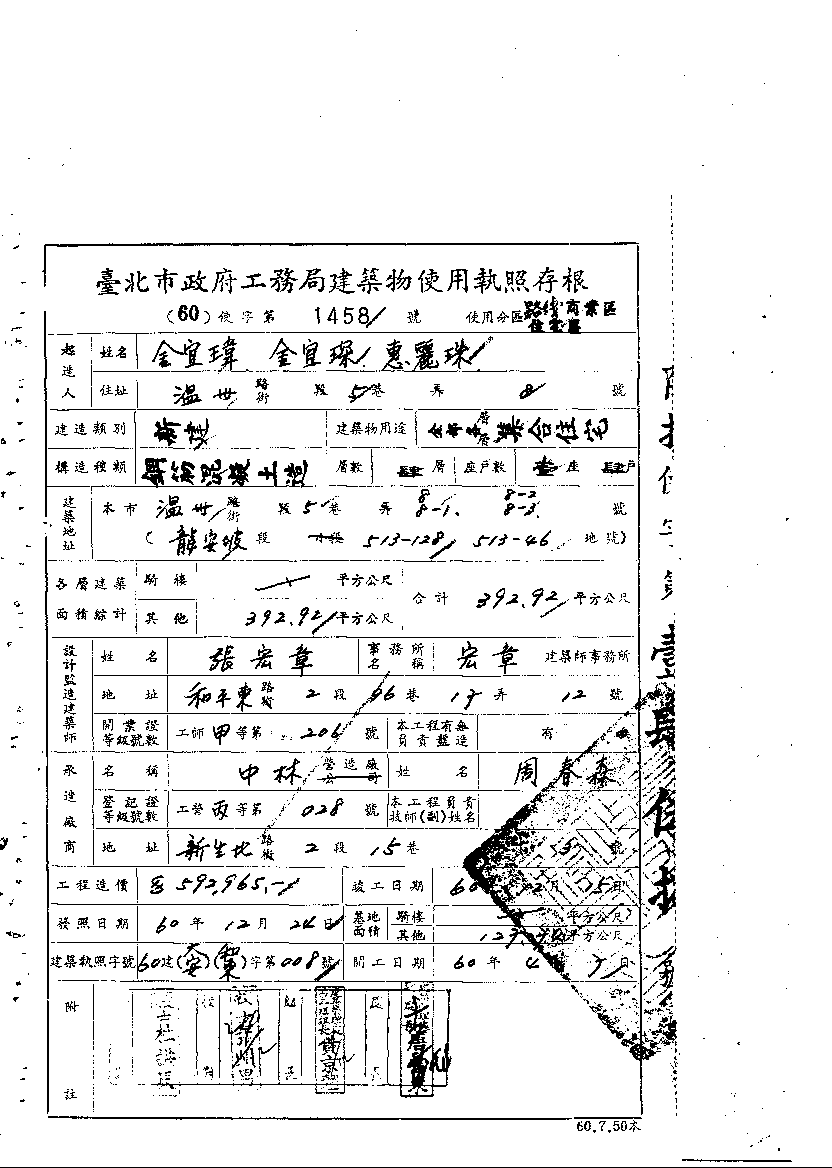 臺北市政府工務局建築物使用執照存根
(60)使字第 1458 號 使用分區 路線商業區 住宅區
起造人 姓名 金宜瑋 金宜琛 惠麗珠
住址 溫州 路街 段 5 巷 弄 8 號
建造類別 新建 建築物用途 集合住宅
構造種類 鋼筋混凝土造 層數 肆 層 座戶數 壹 座 肆 戶
建築地址 本市 溫州 路街 段 5 巷 弄 8 8-1. 8-2 8-3. 號
(龍安坡 段 小段 513-128 513-46 地號)
各層建築面積綜計 騎樓 平方公尺 合計 392.92 平方公尺
其他 392.92 平方公尺
設計監造建築師 姓名 張宏章 事務所名稱 宏章 建築師事務所
地址 和平東 路街 2 段 96 巷 17 弄 12 號
開業證等級號數 工師 甲 等第 206 號 本工程有無員責監造 有
承造廠商 名稱 中林 營造廠公司 姓名 周春森
登記證等級號數 工營 丙 等第 028 號 本工程員責技師(副)姓名
地址 新生北 路街 2 段 15 巷 號
工程造價 592,965.- 竣工日期 60 12 月 15 日
發照日期 60 年 12 月 24 日 基地面積 騎樓 平方公尺
其他 平方公尺
建築執照字號 60建(大安)(黎)字第008號 開工日期 60 年 4 月 7 日
附註
60.7.50本